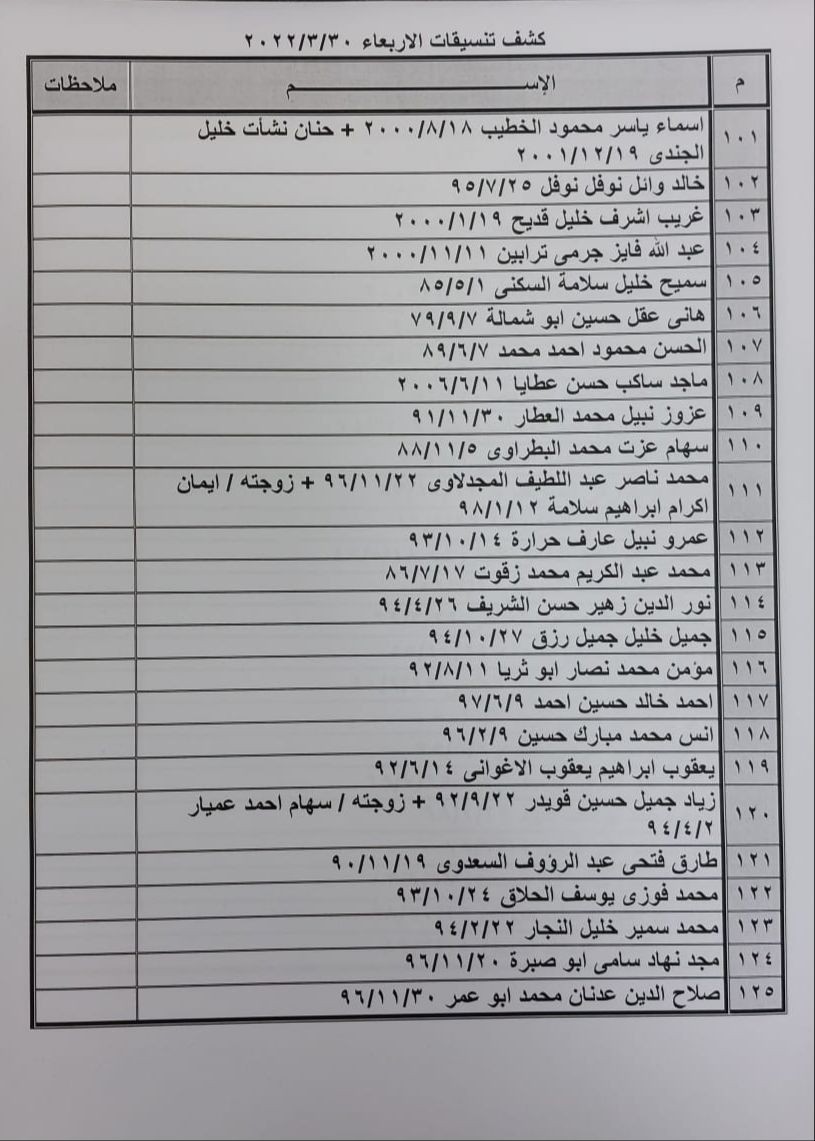 كشف تنسيقات الاربعاء ٢٠٢٢/٣/٣٠
م الإســــــم ملاحظات
١٠١ اسماء ياسر محمود الخطيب ٢٠٠٠/٨/١٨ + حنان نشأت خليل
الجندى ٢٠٠١/١٢/١٩
١٠٢ خالد وائل نوفل نوفل ٩٥/٧/٢٥
١٠٣ غريب اشرف خليل قديح ٢٠٠٠/١/١٩
١٠٤ عبد الله فايز جرمى ترابين ٢٠٠٠/١١/١١
١٠٥ سميح خليل سلامة السكنى ٨٥/٥/١
١٠٦ هانى عقل حسين ابو شمالة ٧٩/٩/٧
١٠٧ الحسن محمود احمد محمد ٨٩/٦/٧
١٠٨ ماجد ساكب حسن عطايا ٢٠٠٦/٦/١١
١٠٩ عزوز نبيل محمد العطار ٩١/١١/٣٠
١١٠ سهام عزت محمد البطراوى ٨٨/١١/٥
١١١ محمد ناصر عبد اللطيف المجدلاوى ٩٦/١١/٢٢ + زوجته / ايمان
اكرام ابراهيم سلامة ٩٨/١/١٢
١١٢ عمرو نبيل عارف حرارة ٩٣/١٠/١٤
١١٣ محمد عبد الكريم محمد زقوت ٨٦/٧/١٧
١١٤ نور الدين زهير حسن الشريف ٩٤/٤/٢٦
١١٥ جميل خليل جميل رزق ٩٤/١٠/٢٧
١١٦ مؤمن محمد نصار ابو ثريا ٩٢/٨/١١
١١٧ احمد خالد حسين احمد ٩٧/٦/٩
١١٨ انس محمد مبارك حسين ٩٦/٢/٩
١١٩ يعقوب ابراهيم يعقوب الاغوانى ٩٢/٦/١٤
١٢٠ زياد جميل حسين قويدر ٩٢/٩/٢٢ + زوجته / سهام احمد عميار
٩٤/٤/٢
١٢١ طارق فتحى عبد الرؤوف السعدوى ٩٠/١١/١٩
١٢٢ محمد فوزى يوسف الحلاق ٩٣/١٠/٢٤
١٢٣ محمد سمير خليل النجار ٩٤/٢/٢٢
١٢٤ مجد نهاد سامى ابو صبرة ٩٦/١١/٢٠
١٢٥ صلاح الدين عدنان محمد ابو عمر ٩٦/١١/٣٠